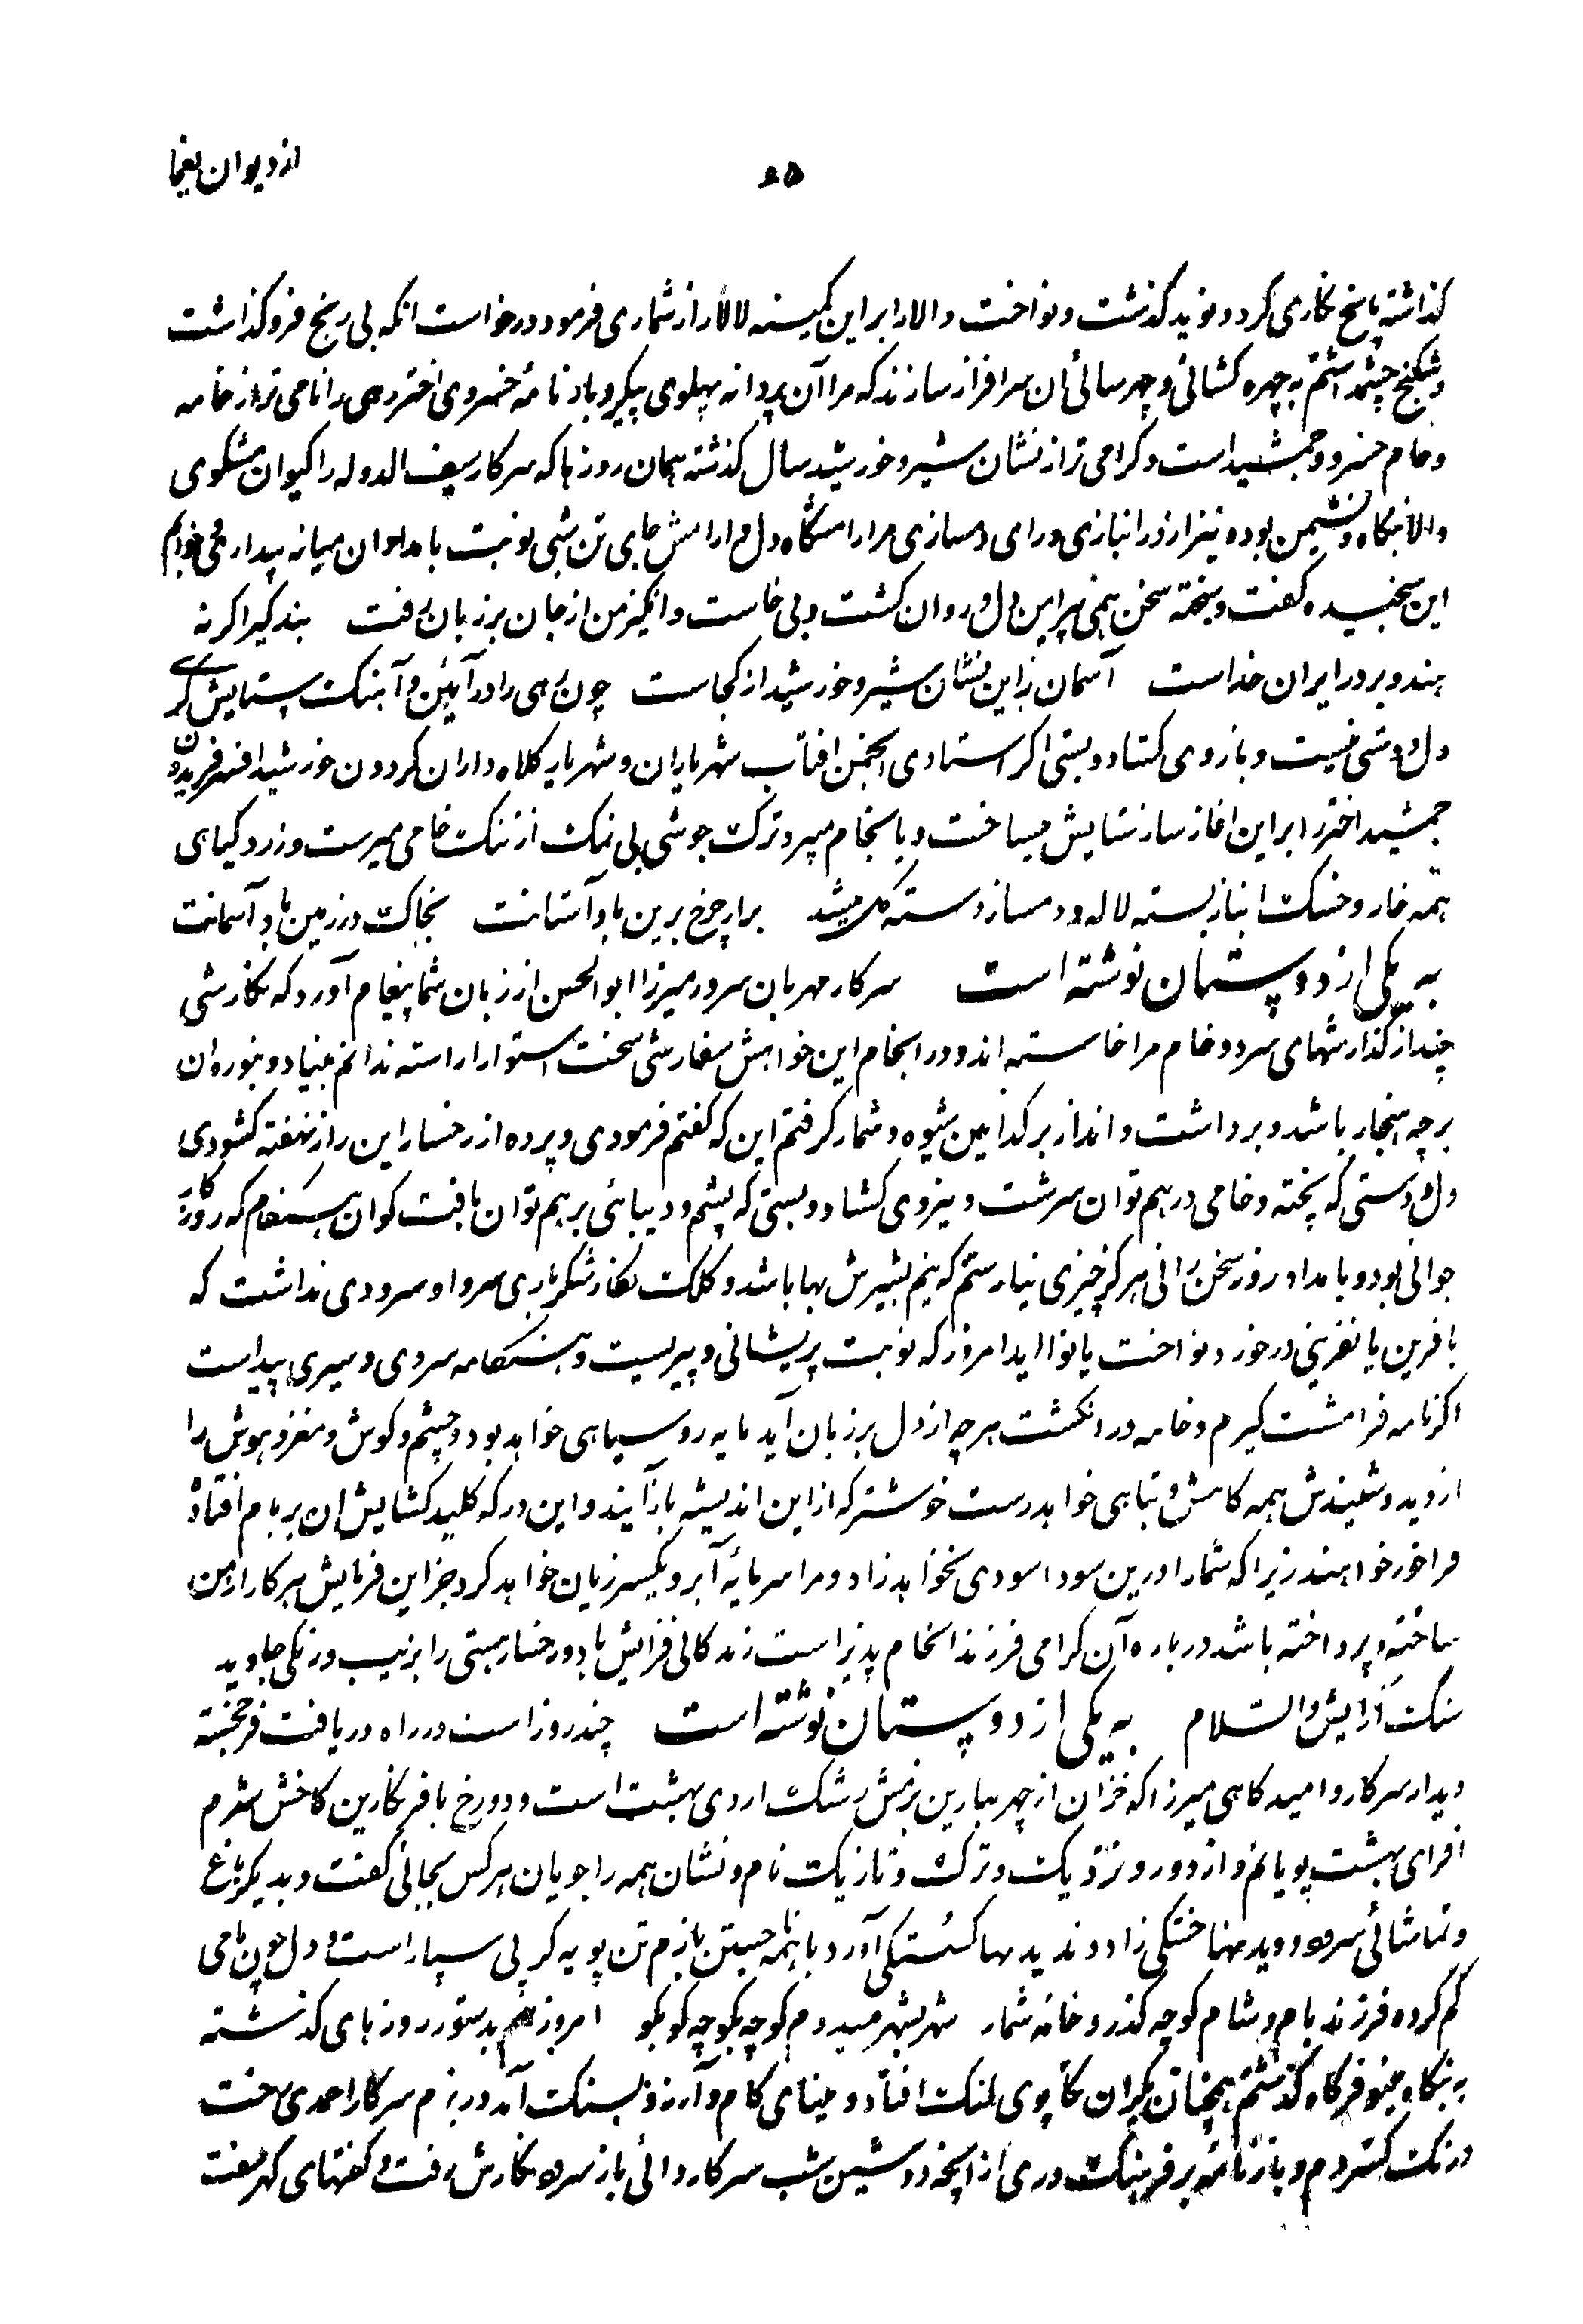 از دیوان یغما
۶۵
کذاشته پاسخ نکاری کرد و نوید کذشت و نواخت والا را بر این کمینه لالا راز شماری فرمود درخواست انکه بی رنج فروکذاشت
و شکنج چشمداشتم به چهره کشائی و چهرسائی ان سرافراز سازند که مرا آن پروانه پهلوی پیکر و بادنامهٔ خسروی اختر دهی را نامی تر از خامه
و جام خسرو و جمشید است و کرامی تر از نشان شیر و خورشید سال کذشته همان روزها که سرکار سیف الدوله را کیوان مشکوی
والا بنکاه و نشیمن بوده نیز از در انبازی و رای دمسازی مرا رامشکاه دل و ارامش جای تن شبی نوبت بامدادان میانه بیدار می خوابم
این سنجیده کفت و پخته سخن همی پیرامن دل و روان کشت و بی خاست و انکیز من از جان بر زبان رفت بندکیرا کر نه
پند و بر در ایران خداست آسمان را این نشان شیر و خورشید از کجاست چون رهی را در آیین و آهنک ستایش کری
دل و دستی نیست و بازوی کشاد و بستی اکر استادی انجمن افتاب شهریاران و شهریار کلاه داران کردون خورشید افسر فریدون
جمشید اختر را بر این اغاز ساز ستایش میساخت و بانجام میبرد ترک جوشی بی نمک از ننک خامی میرست و زرد کیاهی
همه خار و خسک انباز بسته لاله و دمساز دسته کل میشد برار چرخ برین باد آستانت بخاک در زمین باد آسمانت
به یکی از دوستان نوشته است سرکار مهربان سرور میرزا ابوالحسن از زبان شما پیغام آورد که نکارشی
چند از کذارشهای سرد و خام مرا خاسته اند و در انجام این خواهش سفارشی سخت استوار اراسته ندانم بنیاد و بنوره ان
بر چه هنجار باشد و برداشت و انداز بر کدامین شیوه و شمار کرفتم این که کفتم فرمودی و پرده از رخسار این راز نهفته کشودی
دل و دستی که پخته و خامی درهم توان سرشت و نیروی کشاد و بستی که پشم و دیبائی برهم توان بافت کو ان هنکام که روزکار
جوانی بود و بامداد روز سخن رانی هرکز چیزی نیارستم که نیم بشیزش بها باشد و کلک نکارشکر باری سرواد و سرودی نداشت که
بافرین یا نفرینی درخورد نواخت یا نوا اید امروز که نوبت پریشانی و پیریست و هنکامه سردی و سیری پیداست
اکر نامه فرا مشت کیرم و خامه در انکشت هرچه از دل بر زبان آید مایه روسیاهی خواهد بود و چشم و کوش و مغز و هوش را
از دید و شنیدش همه کاهش و تباهی خواهد رست خوشتر که از این اندیشه بازآیند و این در که کلید کشایش ان بر بام افتاده
فراخور خواهند زیرا که شما را در این سودا سودی نخواهد زاد و مرا سرمایه آبرو یکسر زیان خواهد کرد جز این فرمایش هر کار از من
ساخته و پرداخته باشد درباره آن کرامی فرزند انجام پذیر است زندکانی فزایش باد و رخسار هستی را بزیب و رنکی جاوید
سنک آرایش والسلام به یکی از دوستان نوشته است چند روز است در راه دریافت فرخجسته
دیدار سرکار و امیدکاهی میرزا که خزان از چهر بهارین بزمش رشک اردی بهشت است و دوزخ با فر نکارین کاخش شرم
افزای بهشت پویانم و از دور و نزدیک و ترک و تازیک نام و نشان همه را جویان هرکس بجائی کفت و بدیکر باغ
و تماشائی سرود و دیدنها خستکی زاد و ندیدنها کستکی آورد با اینهمه جستن بازم تن پویه کر پی سپار است و دل چون مامی
کم کرده فرزند بام و شام کوچه کذر و خانه شمار شهر بشهر میدوم کوچه بکوچه کو بکو امروز هم بدستور روزهای کذشته
به بنکاه مینو فرکاه کذشتم همچنان یکران تکاپوی لنک افتاد و مینای کام و آرزو بسنک آمد در بزم سرکار احمدی رخت
درنک کستردم و بازنامه بر فرهنک دری از انچه دوشین شب سرکار والی باز سرود نکارش رفت و کفتهای کهر سفت